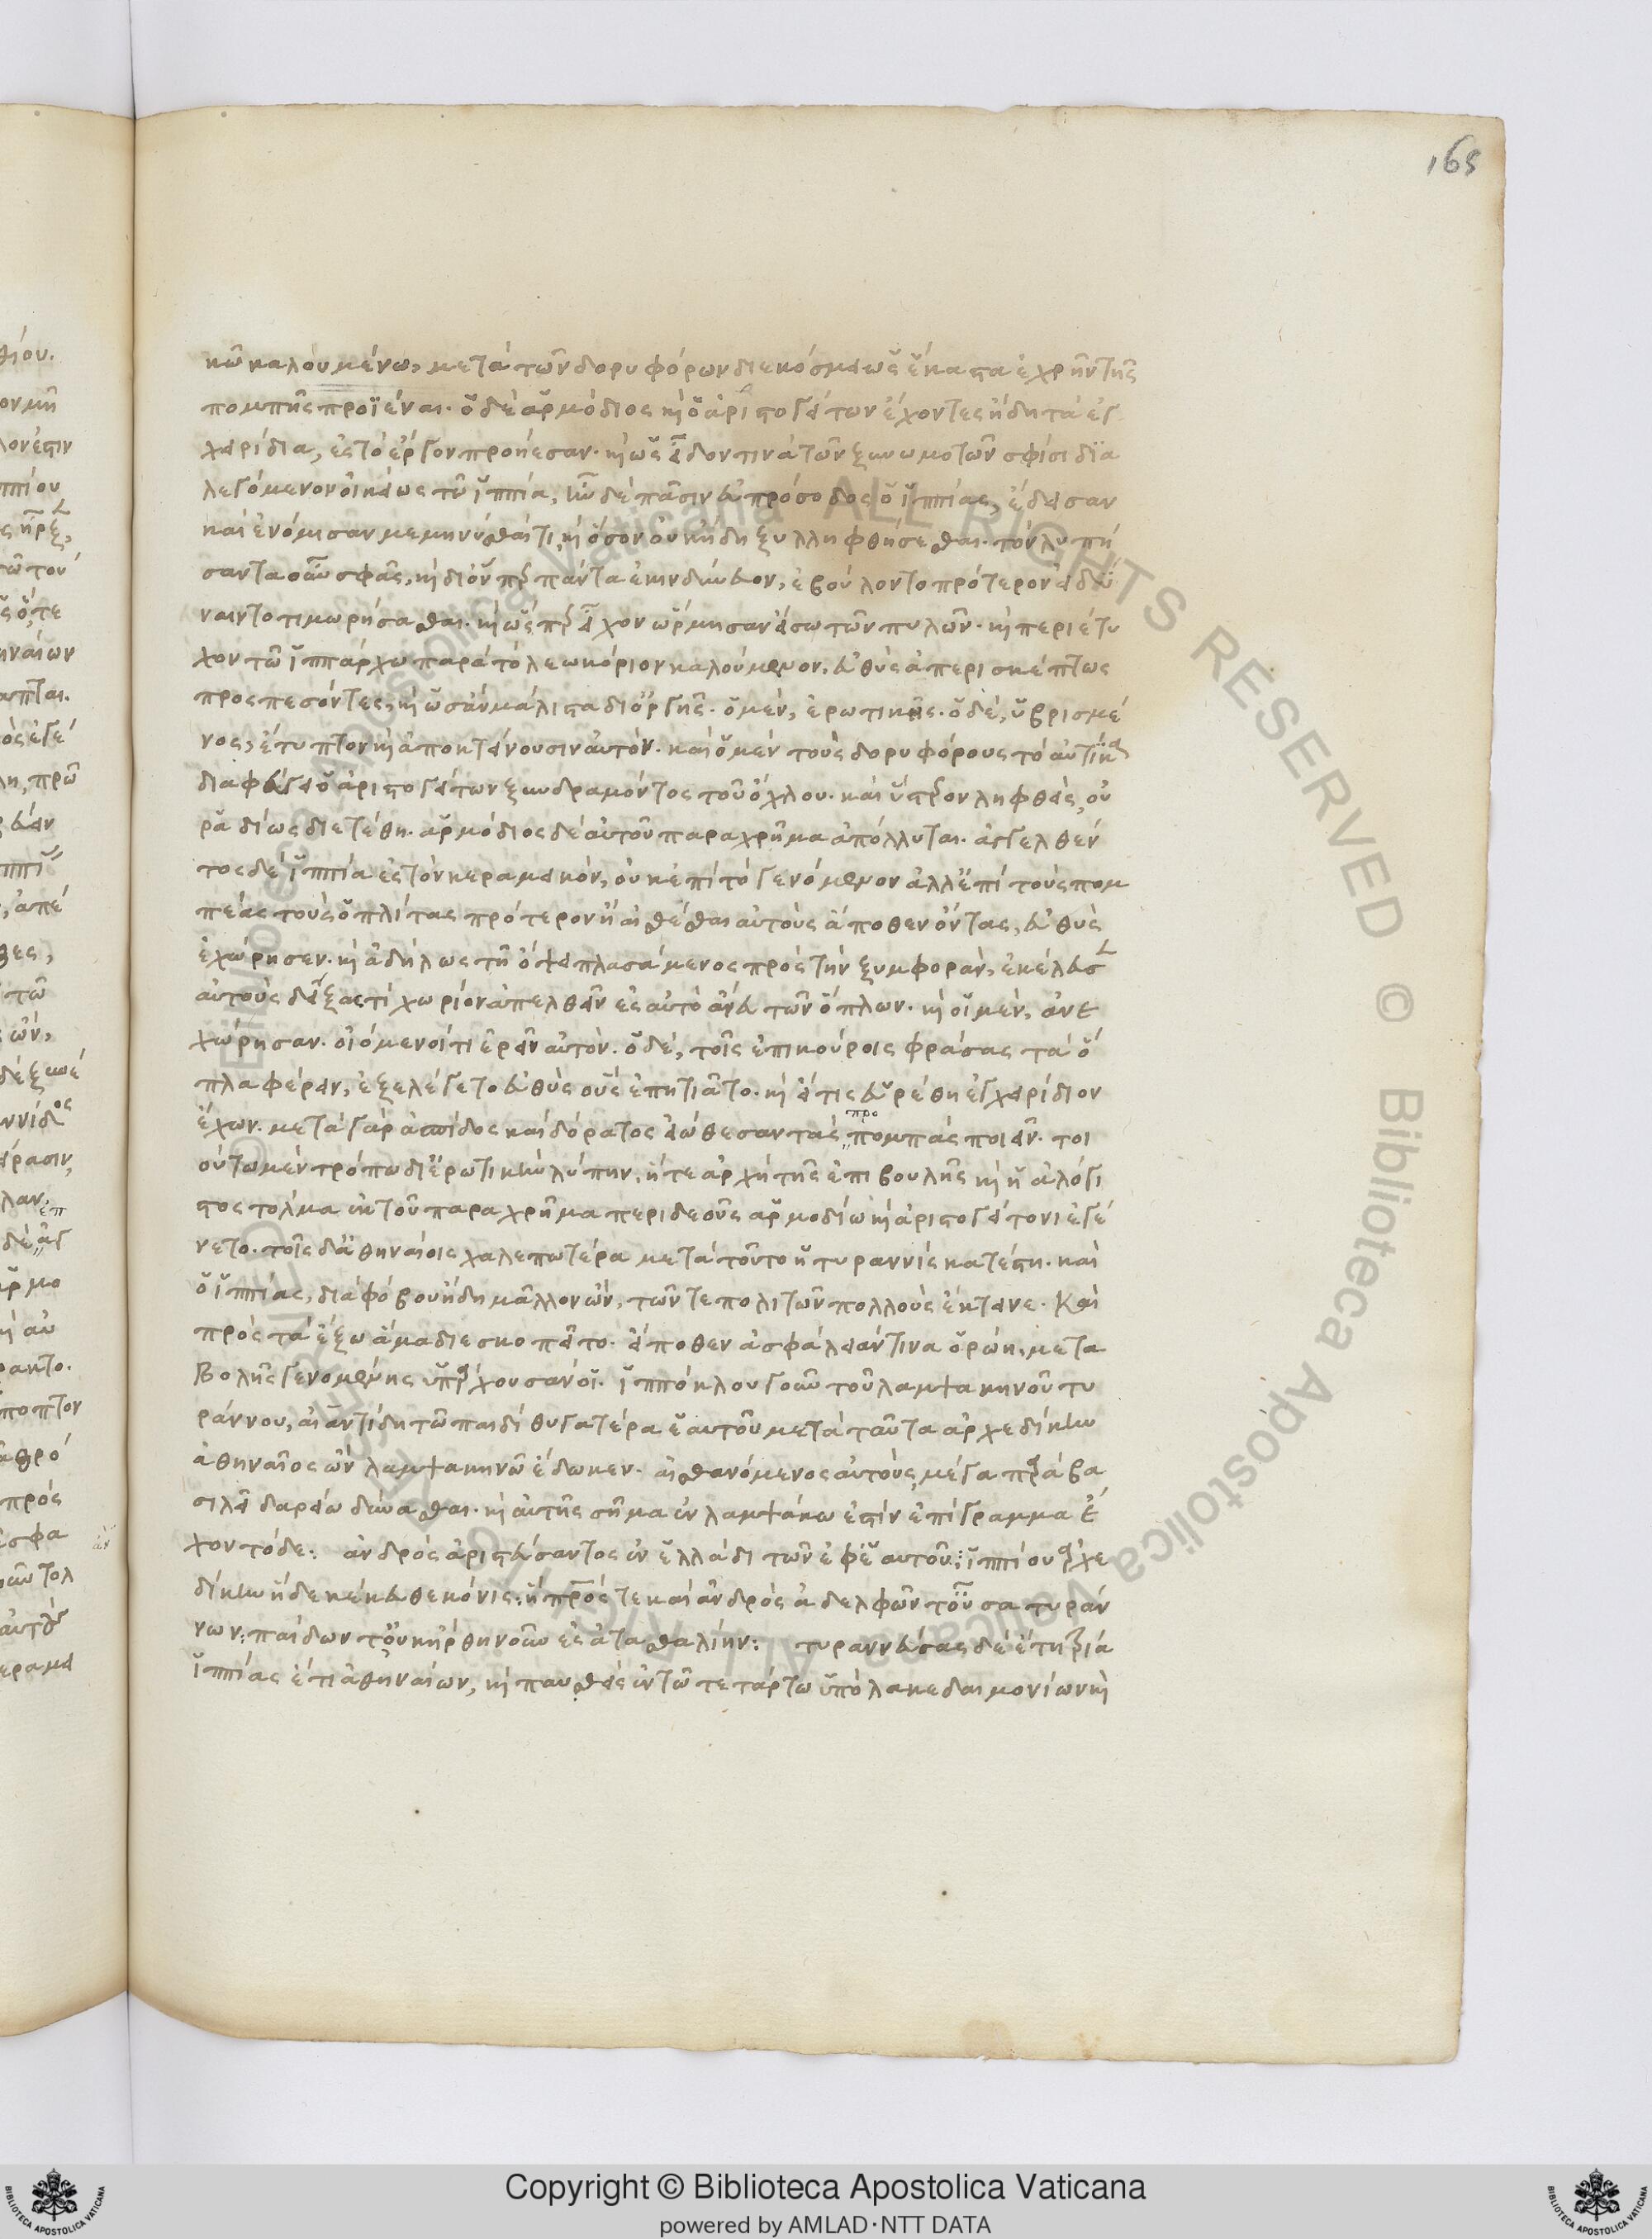 165
κῶ καλουμένω, μετὰ τῶν δορυφόρων διεκόσμει ὡς ἕκαστα ἐχρῆν τῆς
πομπῆς προϊέναι. ὁ δὲ ἁρμόδιος ϗ ὁ ἀριστογείτων ἔχοντες ἤδη τὰ ἐγ
χειρίδια, ἐς τὸ ἔργον προήεσαν. ϗ ὡς εἶδον τινὰ τῶν ξυνωμοτῶν σφίσι δια
λεγόμενον οἰκείως τῶ ἱππία, ἦν δὲ πᾶσιν εὐπρόσοδος ὁ ἱππίας, ἔδεισαν
καὶ ἐνόμισαν μεμηνύσθαί τι, ϗ ὅσον οὐκ ἤδη ξυλληφθήσεσθαι. τὸν λυπή
σαντα οὖν σφᾶς, ϗ δι' ὅνπερ πάντα ἐκινδύνευον, ἐβούλοντο πρότερον εἰ δύ
ναιντο τιμωρήσασθαι. ϗ ὥσπερ εἶχον ὥρμησαν εἴσω τῶν πυλῶν. ϗ περιέτυ
χον τῶ ἱππάρχω παρὰ τὸ λεωκόριον καλούμενον. εὐθὺς ἀπερισκέπτως
προσπεσόντες, ϗ ὡς ἂν μάλιστα δι' ὀργῆς. ὁ μέν, ἐρωτικῆς. ὁ δέ, ὑβρισμέ
νος, ἔτυπτον ϗ ἀποκτείνουσιν αὐτόν. καὶ ὁ μὲν τοὺς δορυφόρους τὸ αὐτίκα
διαφεύγει ὁ ἀριστογείτων ξυνδραμόντος τοῦ ὄχλου. καὶ ὕστερον ληφθεὶς, οὐ
ῥαδίως διετέθη. ἁρμόδιος δὲ αὐτοῦ παραχρῆμα ἀπόλλυται. ἀγγελθέν
τος δὲ ἱππία ἐς τὸν κεραμεικόν, οὐκ ἐπὶ τὸ γενόμενον ἀλλ' ἐπὶ τοὺς πομ
πέας τοὺς ὁπλίτας πρότερον ἢ αἰσθέσθαι αὐτοὺς ἄποθεν ὄντας, εὐθὺς
ἐχώρησεν. ϗ ἀδήλως τῆ ὄψει πλασάμενος πρὸς τὴν ξυμφοράν, ἐκέλευσ
αὐτοὺς δείξας τί χωρίον ἀπελθεῖν ἐς αὐτὸ ἄνευ τῶν ὅπλων. ϗ οἱ μὲν, ἀνε
χώρησαν. οἰόμενοί τι ἐρεῖν αὐτόν. ὁ δέ, τοῖς ἐπικούροις φράσας τὰ ὅ
πλα φέρειν, ἐξελέγετο εὐθὺς οὓς ἐπητιᾶτο. ϗ εἴ τις εὑρέθη ἐγχειρίδιον
ἔχων. μετὰ γὰρ ἀσπίδος καὶ δόρατος εἰώθεσαν τὰς προπομπὰς ποιεῖν. τοι
ούτω μὲν τρόπω δι' ἐρωτικὴν λύπην, ἥ τε ἀρχὴ τῆς ἐπιβουλῆς ϗ ἡ ἀλόγι
στος τόλμα ἐκ τοῦ παραχρῆμα περιδεοῦς ἁρμοδίω ϗ ἀριστογείτονι ἐγέ
νετο. τοῖς δ' ἀθηναίοις χαλεπωτέρα μετὰ τοῦτο ἡ τυραννὶς κατέστη. καὶ
ὁ ἱππίας, διὰ φόβου ἤδη μᾶλλον ὢν, τῶν τε πολιτῶν πολλοὺς ἔκτεινε. καὶ
πρὸς τὰ ἔξω ἅμα διεσκοπεῖτο. εἴποθεν ἀσφάλειάν τινα ὁρώη, μετα
βολῆς γενομένης ὑπάρχουσάν οἱ. ἱππόκλου γοῦν τοῦ λαμψακηνοῦ τυ
ράννου, αἰαντίδη τῶ παιδὶ θυγατέρα ἑαυτοῦ μετὰ ταῦτα ἀρχεδίκην
ἀθηναῖος ὢν λαμψακηνῶ ἔδωκεν. αἰσθανόμενος αὐτοὺς, μέγα παρὰ βα
σιλεῖ δαρείω δύνασθαι. ϗ αὐτῆς σῆμα ἐν λαμψάκω ἐστὶν ἐπίγραμμα ἔ
χον τόδε: ἀνδρὸς ἀριστεύσαντος ἐν ἑλλάδι τῶν ἐφ' ἑαυτοῦ: ἱππίου ἀρχε
δίκην ἥδε κέκευθε κόνις: ἣ πατρός τε καὶ ἀνδρὸς ἀδελφῶν τ' οὖσα τυράν
νων: παίδων τ' οὐκ ἤρθη νοῦν ἐς ἀτασθαλίην: τυραννεύσας δὲ ἔτη τρία
ἱππίας ἔτι ἀθηναίων, ϗ παυσθεὶς ἐν τῶ τετάρτω ὑπὸ λακεδαιμονίων ϗ
Copyright © Biblioteca Apostolica Vaticana
powered by AMLAD·NTT DATA